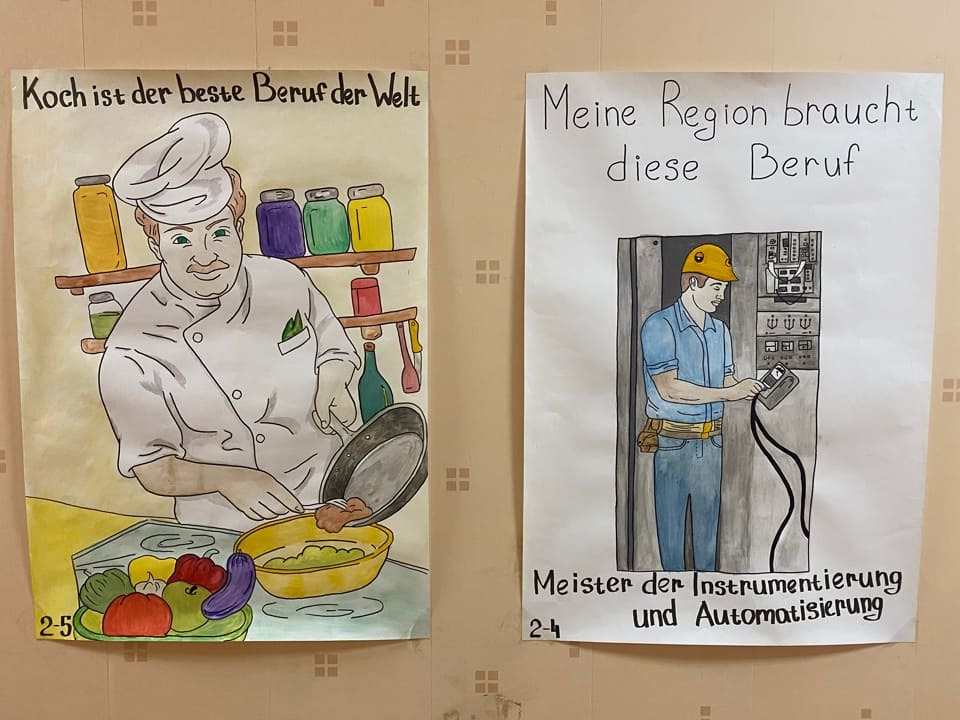 Koch ist der beste Beruf der Welt
2-5
Meine Region braucht
diese Beruf
Meister der Instrumentierung
und Automatisierung
2-4